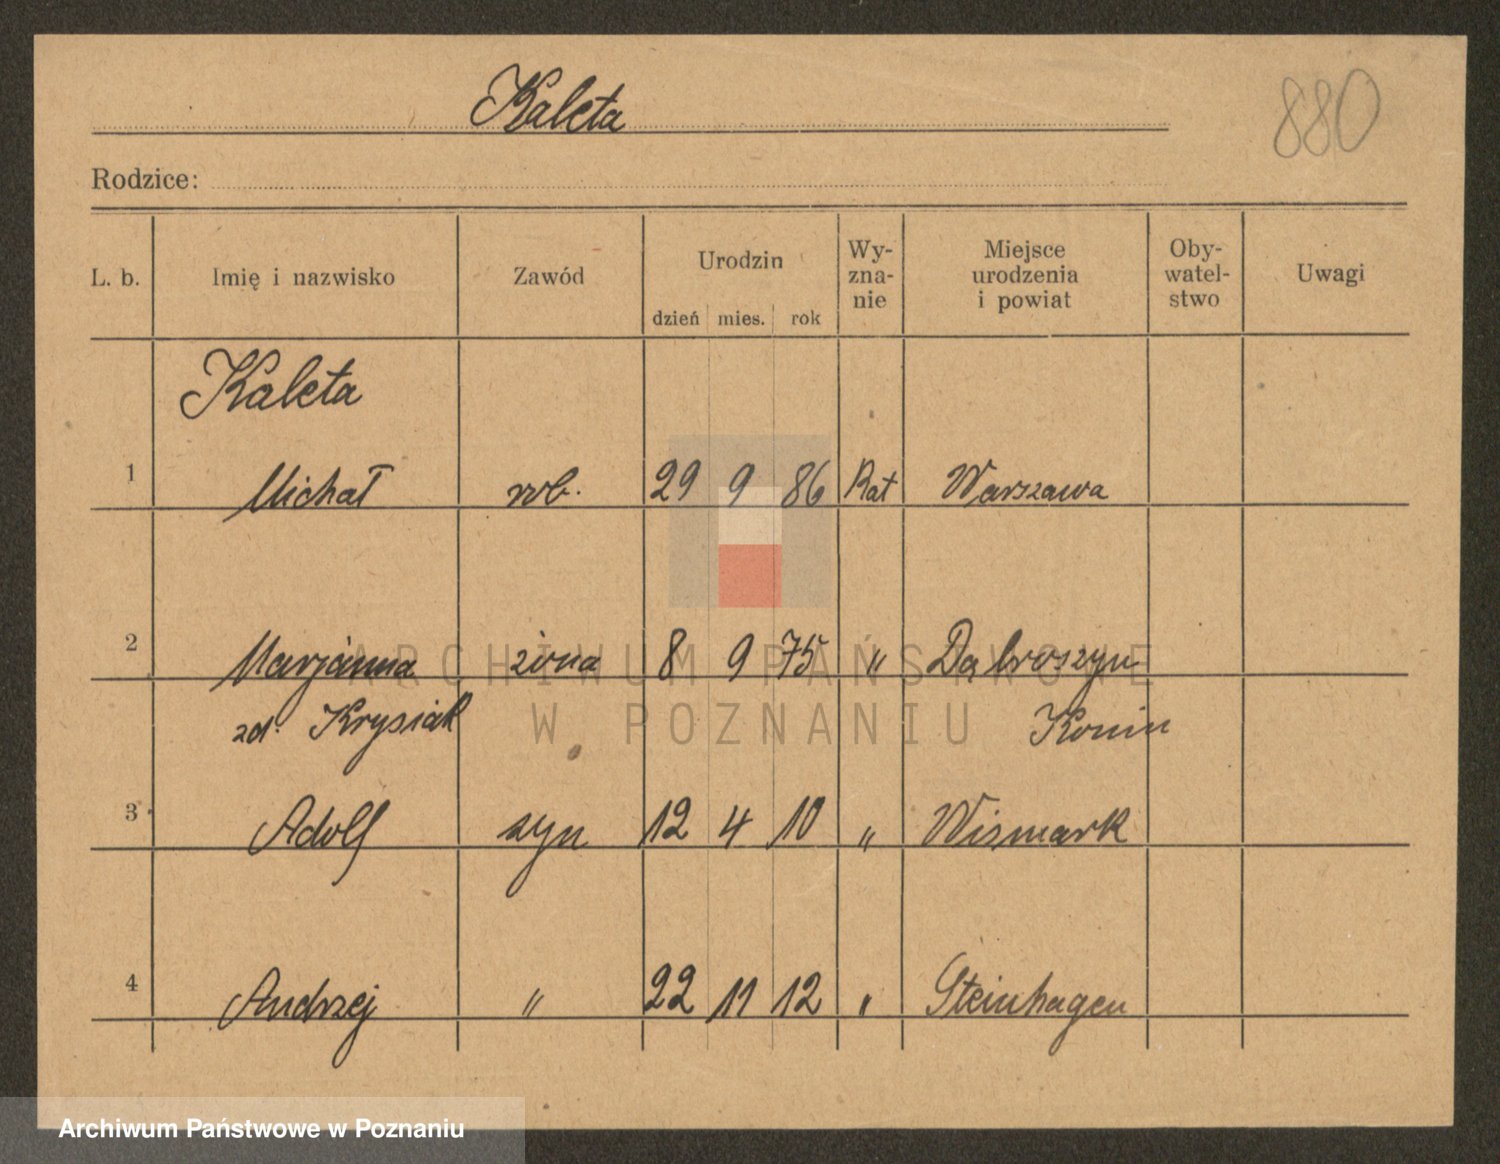 Kaleta
880
Rodzice:
L. b. Imię i nazwisko Zawód Urodzin dzień mies. rok Wy-zna-nie Miejsce urodzenia i powiat Oby-watel-stwo Uwagi
Kaleta
1 Michał rob. 29 9 86 Kat Warszawa
2 Marjanna żona 8 9 75 " Dąbroszyn
zd. Krysiak Konin
3 Adolf syn 12 4 10 " Wismark
4 Andrzej " 22 11 12 " Steinhagen
ARCHIWUM PAŃSTWOWE
W POZNANIU
Archiwum Państwowe w Poznaniu